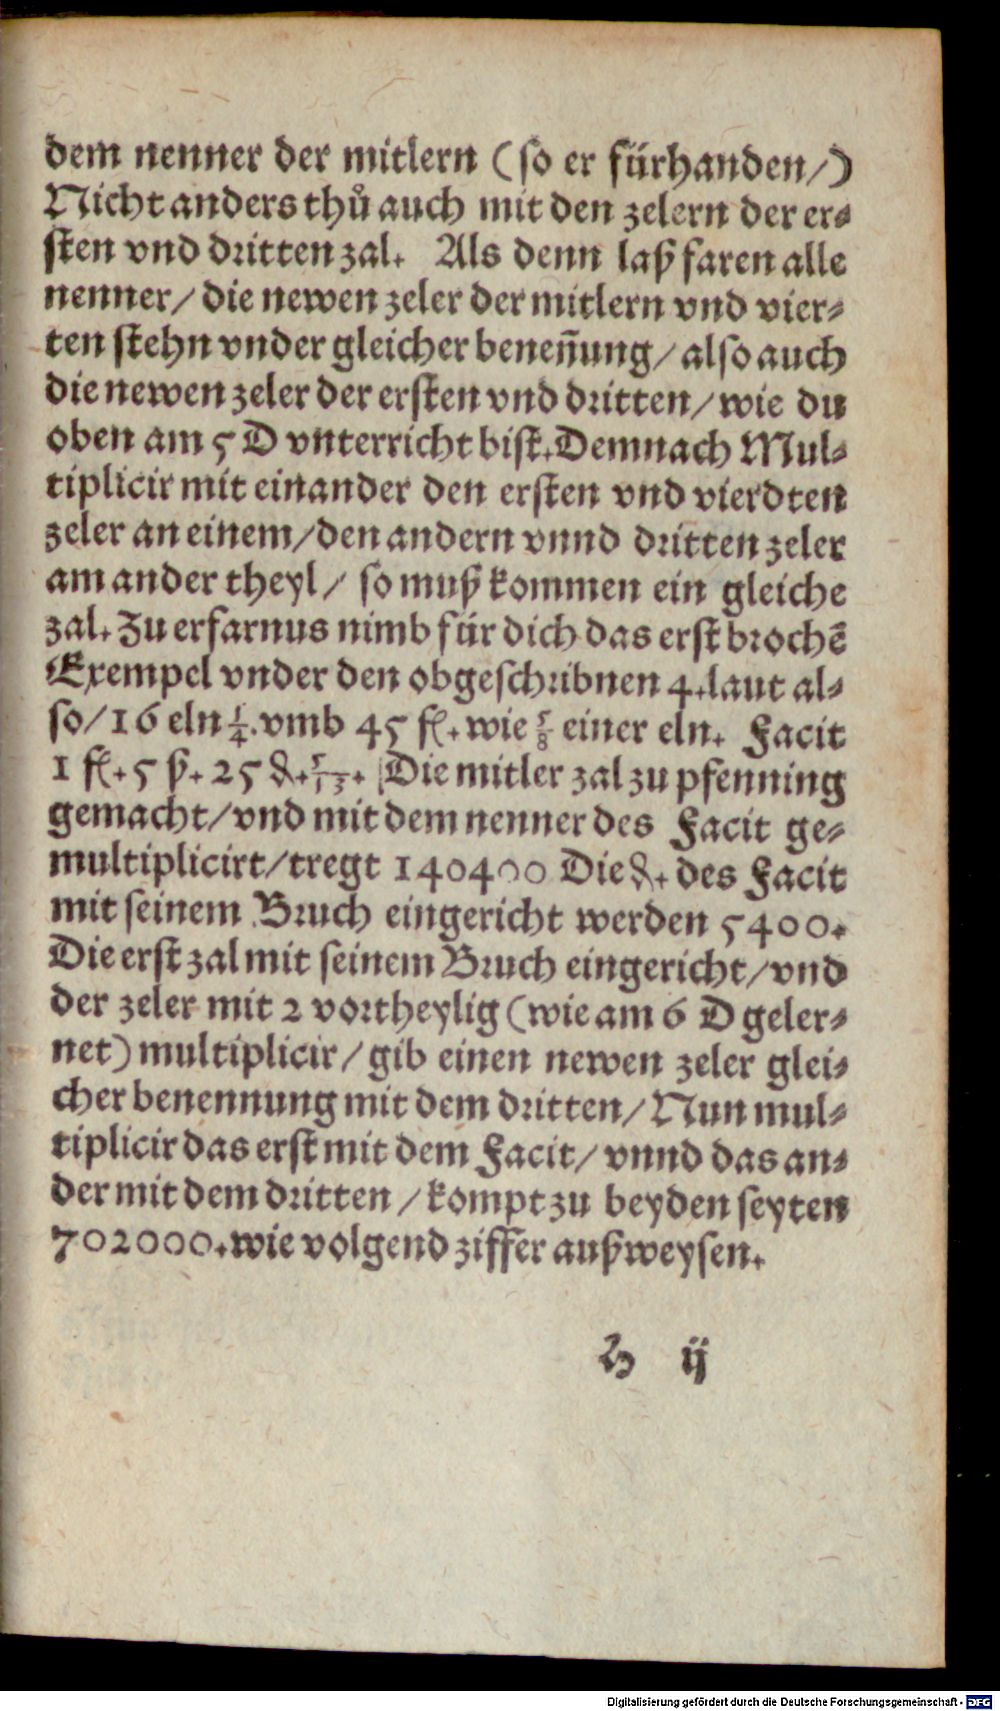 dem nenner der mitlern (so er fürhanden/)
Nicht anders thů auch mit den zelern der er⸗
sten vnd dritten zal. Als denn laß faren alle
nenner/ die newen zeler der mitlern vnd vier⸗
ten stehn vnder gleicher beneñung/ also auch
die newen zeler der ersten vnd dritten/ wie du
oben am 5 D vnterricht bist. Demnach Mul⸗
tiplicir mit einander den ersten vnd vierdten
zeler an einem/ den andern vnnd dritten zeler
am ander theyl/ so muß kommen ein gleiche
zal. Zu erfarnus nimb für dich das erst brochẽ
Exempel vnder den obgeschribnen 4. laut al⸗
so/ 16 eln 1/4. vmb 45 fl. wie 5/8 einer eln. Facit
1 fl. 5 ß. 25 ₰. 5/13. Die mitler zal zu pfenning
gemacht/ vnd mit dem nenner des Facit ge⸗
multiplicirt/ tregt 140400 Die ₰. des Facit
mit seinem Bruch eingericht werden 5400.
Die erst zal mit seinem Bruch eingericht/ vnd
der zeler mit 2 vortheylig (wie am 6 D geler⸗
net) multiplicir/ gib einen newen zeler glei⸗
cher benennung mit dem dritten/ Nun mul⸗
tiplicir das erst mit dem Facit/ vnnd das an⸗
der mit dem dritten/ kompt zu beyden seyten
702000. wie volgend ziffer außweysen.
h ij
Digitalisierung gefördert durch die Deutsche Forschungsgemeinschaft - DFG